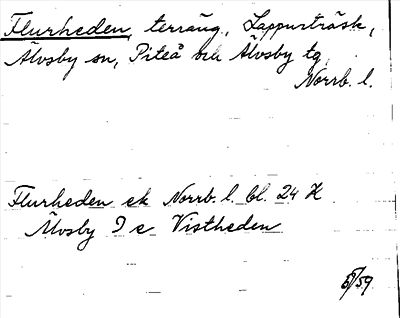 Flurheden, terräng, Lappurträsk,
Älvsby sn, Piteå och Älvsby tg
Norrb. l.
Flurheden ek Norrb. l. bl. 24 H
Älvsby I c Vistheden
/59